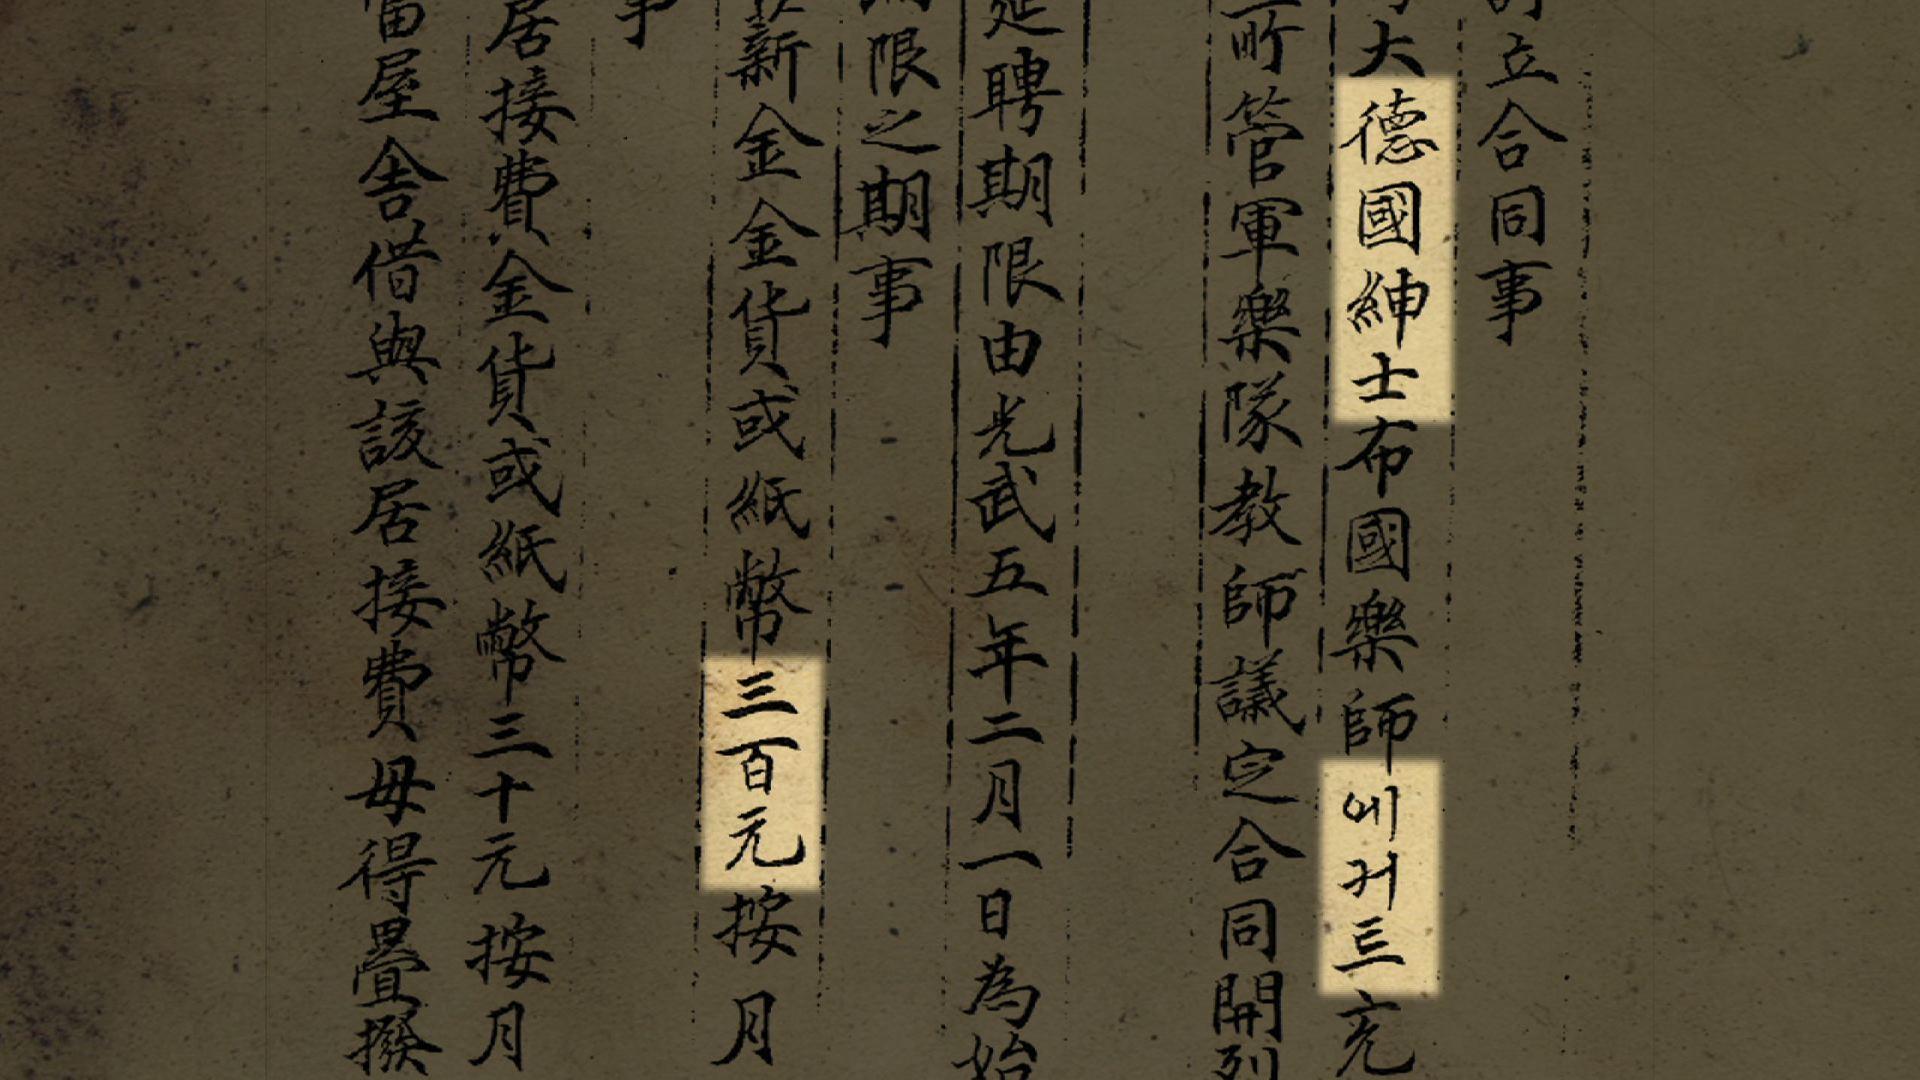 立合同事
大德國紳士布國樂師에커트充
所管軍樂隊教師議定合同開列
延聘期限由光武五年二月一日為始
限之期事
薪金金貨或紙幣三百元按月
事
居接費金貨或紙幣三十元按月
當屋舍借與該居接費毋得疊撥